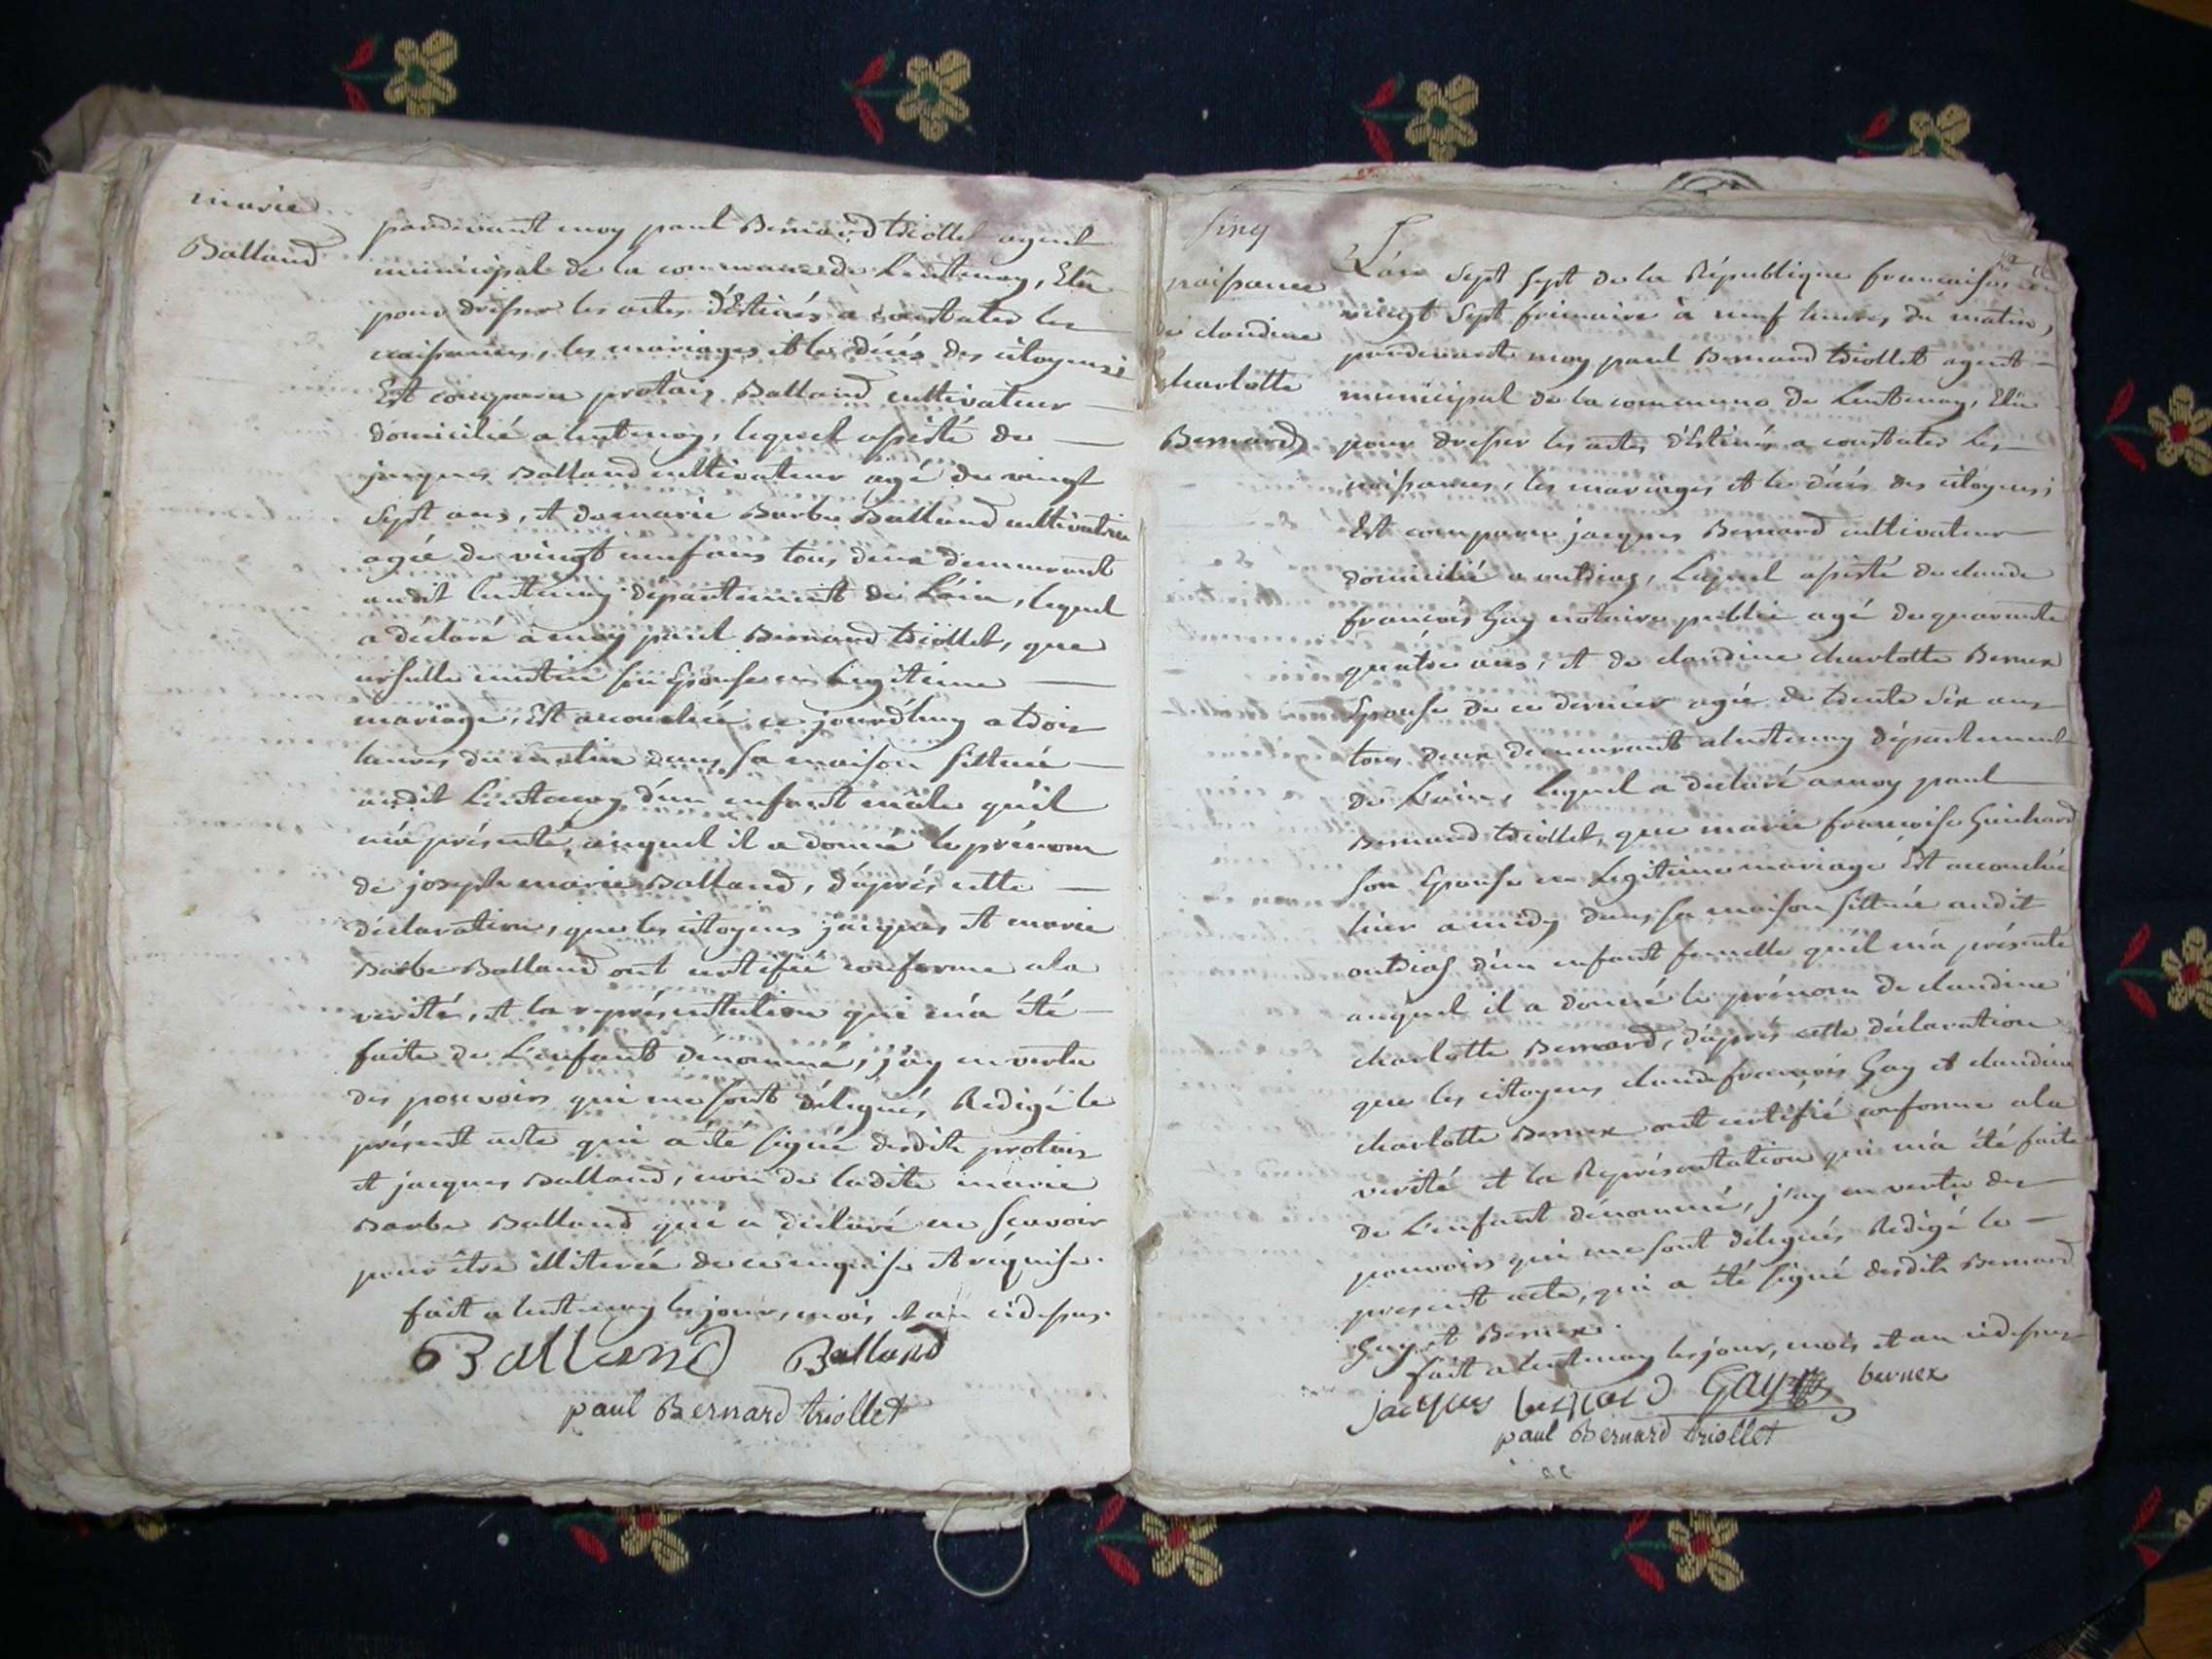 marie
Balland
pardevant moy paul Bernard triollet agent
municipal de la commune de Lentenay, Elu
pour dresser les actes déstinés a constater les
naissances, les mariages et les décés des citoyens;
Est comparu protais Balland cultivateur
domicilié a lentenay, lequel assisté de
jacques Balland cultivateur agé de vingt
sept ans, et de marie Barbe Balland cultivatrice
agée de vingt neuf ans tous deux demeurant
audit lentenay département de L'ain, lequel
a déclaré a moy paul Bernard triollet, que
ursulle son Epouse en Legitime
mariage, Est accouchée ce jourd'huy a trois
heures du matin dans sa maison sittuée
audit Lentenay d'un enfant mâle qu'il
m'a présenté, auquel il a donné le prénom
de joseph marie Balland, d'aprés cette
déclaration, que les citoyens jacques et marie
Barbe Balland ont certifié conforme a la
verité, et la représentation qui m'a été
faite de L'enfant dénommé, j'ay en vertu
des pouvoirs qui me sont délegués Redigé le
présent acte qui a été signé desdits protais
et jacques Balland, non de ladite marie
Barbe Balland qui a déclaré ne scavoir
pour être illiterée de ce enquise et requise.
fait a lentenay les jour, mois et an cidessus.
Balland Balland
paul Bernard triollet
sinq
naissance
de claudine
charlotte
Bernard
L'an sept sept de la République francaise le
vingt sept frimaire à neuf heures du matin,
pardevant moy paul Bernard triollet agent
municipal de la commune de Lentenay, Elu
pour dresser les actes déstinés a constater les
naissances, les mariages et les décés des citoyens;
Est comparu jacques Bernard cultivateur
domicilié a outriaz, Lequel assisté de claude
francois Gay notaire public agé de quarante
quatre ans, et de claudine charlotte Bernex
Epouse de ce dernier agée de trente six ans
tous deux demeurant a lentenay département
de L'ain, lequel a declaré a moy paul
Bernard triollet, que marie francoise Guichard
son Epouse en Legitime mariage Est accouchée
hier a midy dans sa maison sittuée audit
outriaz d'un enfant femelle qu'il m'a présenté
auquel il a donné le prénom de claudine
charlotte Bernard, d'aprés cette déclaration
que les citoyens claude francois Gay et claudine
charlotte Bernex ont certifié conforme a la
verité et la Représentation qui m'a été faite
de L'enfant dénommé, j'ay en vertu des
pouvoirs qui me sont délegués Redigé le
present acte, qui a été signé desdits Bernard
Gay et Bernex.
fait a lentenay les jour, mois et an cidessus
jacques bernard Gay bernex
paul Bernard triollet